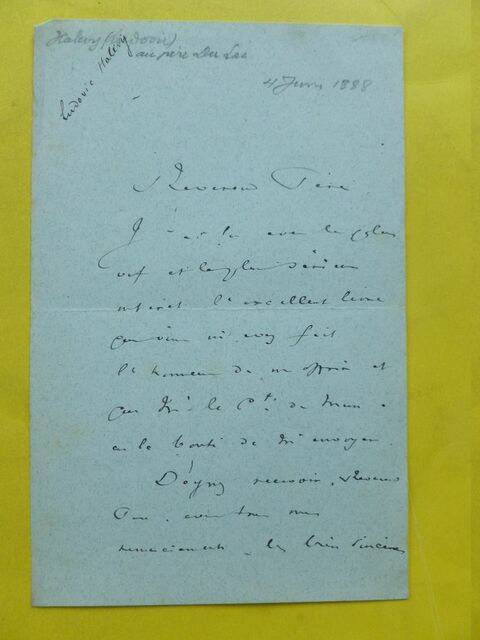 Halévy (Ludovic)
au père Du Lac
Ludovic Halévy
4 Juin 1888
Révérend Père
J'ai lu avec le plus
vif et le plus sérieux
intérêt l'excellent livre
que vous m'avez fait
l'honneur de m'offrir et
que Mr le Cte de Mun a
eu la bonté de m'envoyer.
Daignez recevoir, Révérend
Père, avec tous mes
remerciements les bien sincères